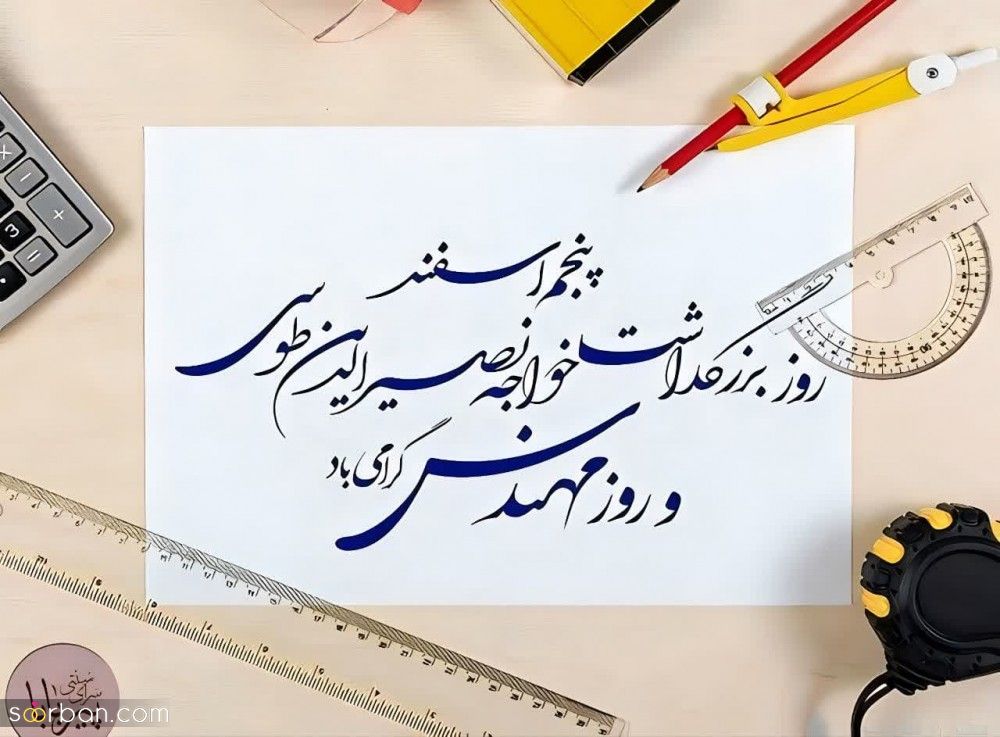 پنجم اسفند
روز بزرگداشت خواجه نصیرالدین طوسی
و روز مهندس گرامی باد
سرای سنتی
soorban.com